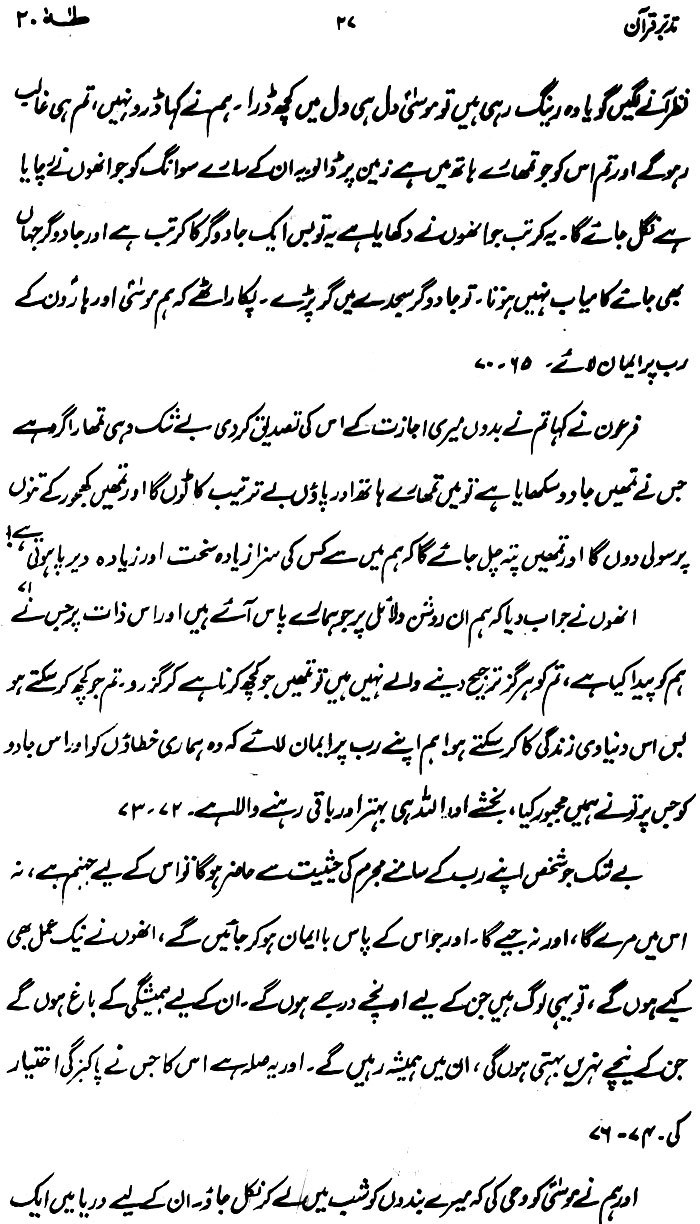 تدبر قرآن ۲۷ طٰهٰ ۲۰
نظر آنے لگیں گویا وہ رینگ رہی ہیں تو موسیٰ دل ہی دل میں کچھ ڈرا۔ ہم نے کہا ڈرو نہیں، تم ہی غالب
رہو گے اور تم اس کو جو تمھارے ہاتھ میں ہے زمین پر ڈالو یہ ان کے سارے سوانگ کو جو انھوں نے رچایا
ہے نگل جائے گا۔ یہ کرتب جو انھوں نے دکھایا ہے یہ تو بس ایک جادوگر کا کرتب ہے اور جادوگر جہاں
بھی جائے کامیاب نہیں ہوتا۔ تو جادوگر سجدے میں گر پڑے۔ پکار اٹھے کہ ہم موسیٰ اور ہارون کے
رب پر ایمان لائے۔ ۶۵-۷۰
فرعون نے کہا تم نے بدوں میری اجازت کے اس کی تصدیق کر دی بے شک وہی تمھارا گرو ہے
جس نے تمھیں جادو سکھایا ہے تو میں تمھارے ہاتھ اور پاؤں بے ترتیب کاٹوں گا اور تمھیں کھجور کے تنوں
پر سولی دوں گا اور تمھیں پتہ چل جائے گا کہ ہم میں سے کس کی سزا زیادہ سخت اور زیادہ دیرپا ہوتی ہے! ۷۱
انھوں نے جواب دیا کہ ہم ان روشن دلائل پر جو ہمارے پاس آئے ہیں اور اس ذات پر جس نے
ہم کو پیدا کیا ہے، تم کو ہرگز ترجیح دینے والے نہیں ہیں تو تمھیں جو کچھ کرنا ہے کر گزرو۔ تم جو کچھ کر سکتے ہو
بس اس دنیاوی زندگی کا کر سکتے ہو! ہم اپنے رب پر ایمان لائے کہ وہ ہماری خطاؤں کو اور اس جادو
کو جس پر تو نے ہمیں مجبور کیا، بخشے اور اللہ ہی بہتر اور باقی رہنے والا ہے۔ ۷۲-۷۳
بے شک جو شخص اپنے رب کے سامنے مجرم کی حیثیت سے حاضر ہوگا تو اس کے لیے جہنم ہے، نہ
اس میں مرے گا، اور نہ جیے گا۔ اور جو اس کے پاس باایمان ہو کر جائیں گے، انھوں نے نیک عمل بھی
کیے ہوں گے، تو یہی لوگ ہیں جن کے لیے اونچے درجے ہوں گے۔ ان کے لیے ہمیشگی کے باغ ہوں گے
جن کے نیچے نہریں بہتی ہوں گی، ان میں ہمیشہ رہیں گے۔ اور یہ صلہ ہے اس کا جس نے پاکیزگی اختیار
کی۔ ۷۴-۷۶
اور ہم نے موسیٰ کو وحی کی کہ میرے بندوں کو شب میں لے کر نکل جاؤ۔ ان کے لیے دریا میں ایک